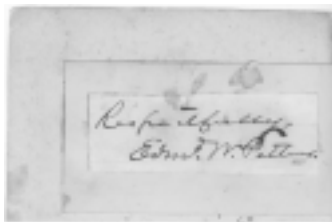 Respectfully,
Edmd. W. Pettus.